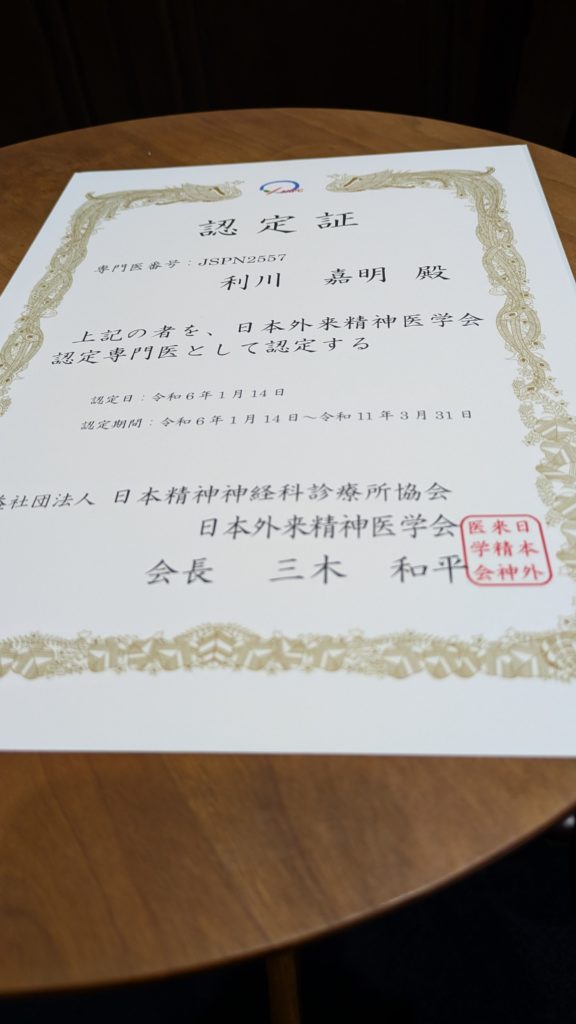 認定証
専門医番号：JSPN2557
利川 嘉明 殿
上記の者を、日本外来精神医学会
認定専門医として認定する
認定日：令和6年1月14日
認定期間：令和6年1月14日～令和11年3月31日
益社団法人 日本精神神経科診療所協会
日本外来精神医学会
会長 三木 和平
日本外
来精神
医学会